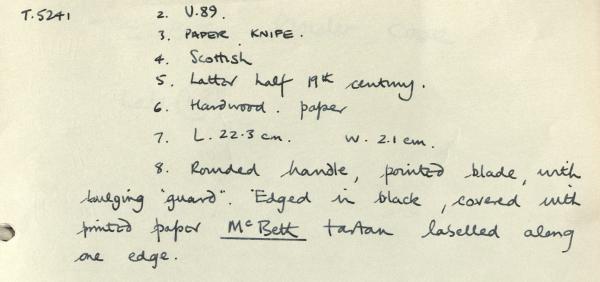 T.5241 2. U.89.
3. PAPER KNIFE.
4. Scottish
5. Latter half 19th century.
6. Hardwood. paper
7. L. 22.3 cm. W. 2.1 cm.
8. Rounded handle, pointed blade, with
bulging "guard". Edged in black, covered with
printed paper McBett tartan labelled along
one edge.